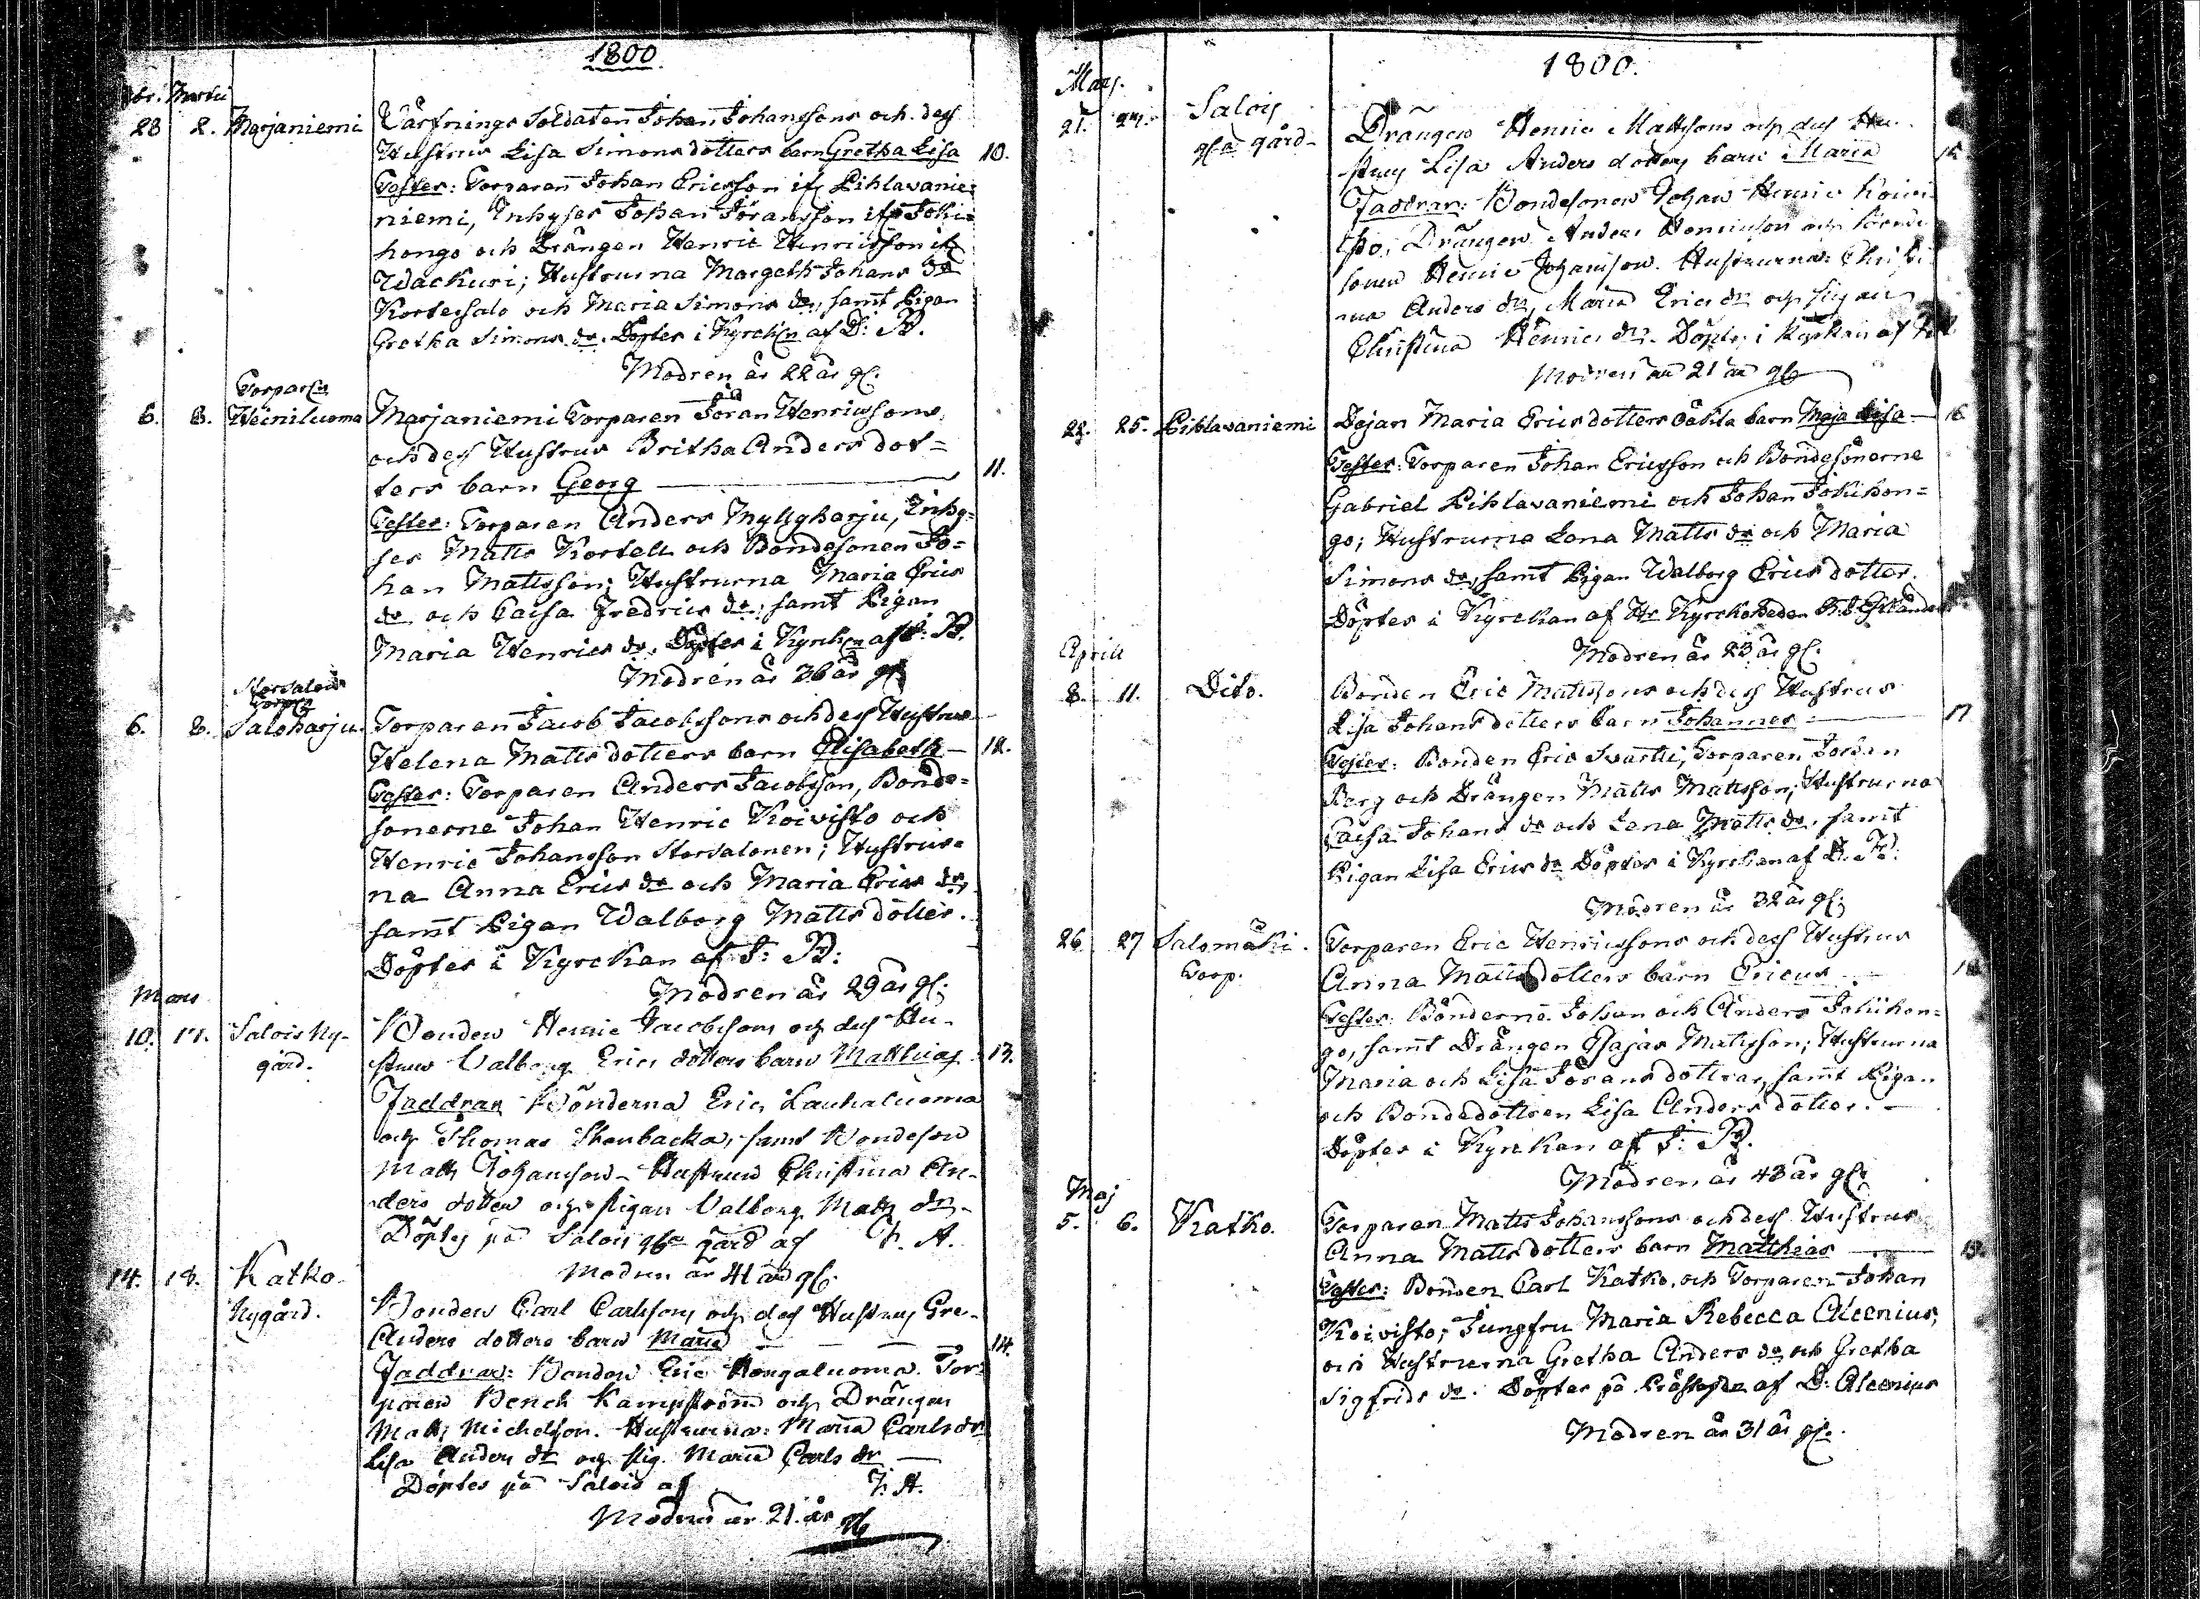 1800.
br. Martii
28 2. Marjaniemi Värfnings Soldaten Johan Johanssons och dess
Hustrus Lisa Simons dotters barn Gretha Lisa 10.
Testes: Torparen Johan Ericsson ifr Pihlavanie=
niemi, Inhyses Johan Jöransson ifr Joki=
hongo och Drängen Henric Henricsson ifr
Wackuri; Hustrurna Margeth Johans dr
Kortessalo och Maria Simons dr, samt Pigan
Gretha Simons dr. Döptes i Kyrckn af J: B.
Modren är 22 år gl:
Torparen
6. 8. Heiniluoma Marjaniemi Torparen Jöran Henricssons
och dess Hustrus Britha Anders dot=
ters barn Georg 11.
Testes: Torparen Anders Myllyharju, Inhy=
ses Matts Kortell och Bondesonen Jo=
han Mattsson; Hustrurna Maria Erics
dr och Caisa Fredrics dr; samt Pigan
Maria Henrics dr. Döptes i Kyrckn af J: B.
Modren är 36 år gl
Storsalois
Torpn
6. 8. Saloharju. Torparen Jacob Jacobssons och dess Hustrus
Helena Matts dotters barn Elisabeth 12.
Testes: Torparen Anders Jacobsson, Bonde=
sonerne Johan Henric Koivisto och
Henric Johansson Storsalonen; Hustrur=
na Anna Erics dr och Maria Erics dr,
samt Pigan Walborg Matts dotter.
Döptes i Kyrckan af J: B:
Modren är 29 år gl:
Mars
10. 17. Salois Ny-
gård.
Bonden Henric Jacobssons och dess Hu-
strus Valborg Erics dotters barn Matthias 13.
Faddrar Bönderna Eric Lauhaluoma
och Thomas Stenbacka, samt Bondeson
Matts Johansson - Hustrun Christina An-
ders dotter och pigan Valborg Matts dr -
Döptes på Salois gla gård af J. A.
Modren är 41 år gl:
14. 18. Katko
Nygård.
Bonden Carl Carlssons och dess Hustrus Gre.
Anders dotters barn Maria 14.
Faddrar: Bonden Eric Hongaluoma. Tor-
paren Kampström och Drängen
Matts Michelsson. Hustrurna: Maria Carls dr
Lisa Anders dr och pig. Maria Carls dr
Döptes på Salois af J. A.
Modren är 21 år gl
1800.
Mars.
21. Salois
gla gård
Drängen Henric Mattssons och dess Hu-
strus Lisa Anders dotters barn Maria 15
Faddrar: Bondesonen Johan Henric Koivi
sto, Drängen Anders Henricsson och bonde
sonen Henric Johansson. Hustrurna: Christi
na Anders dr, Maria Erics dr och pigan
Christina Henrics dr. Döptes i kyrkan af
Modren är 21 år gl
23. 25. Pihlavaniemi Pejan Maria Erics dotters oäkta barn Maja Lisa 16
Testes: Torparen Johan Ericsson och Bondesönerne
Gabriel Pihlavaniemi och Johan Jokihon=
go; Hustrurna Lena Matts dr och Maria
Simons dr, samt Pigan Walborg Erics dotter.
Döptes i Kyrckan af Hr Kyrckoheden
Modren är 23 år gl:
April
8. 11. Dito. Bonden Eric Mattssons och dess Hustrus
Lisa Johans dotters barn Johannes 17
Testes: Bonden Eric Svartti, Torparen Johan
Berg och Drängen Matts Mattsson; Hustrurna
Caisa Johans dr och Lena Matts dr, samt
Pigan Lisa Erics dr Döptes i Kyrckan af
Modren är 32 år gl:
26. 27 Salomäki
Torp.
Torparen Eric Henricssons och dess Hustrus
Anna Matts dotters barn Ericus 18
Testes: Bönderne Johan och Anders Jokihon=
go, samt Drängen Esajas Mattsson; Hustrurna
Maria och Lisa Jörans dottrar, samt Pigan
och Bondedottren Lisa Anders dotter.
Döptes i Kyrckan af J: B.
Modren är 43 år gl:
Maj
5. 6. Katko. Torparen Matts Johanssons och dess Hustrus
Anna Matts dotters barn Matthias 19.
Testes: Bonden Carl Katko, och Torparen Johan
Koivisto; Jungfru Maria Rebecca Alcenius,
och Hustrurna Gretha Anders dr och Gretha
Sigfrids dr. Döptes på af D: Alcenius
Modren är 31 år gl: